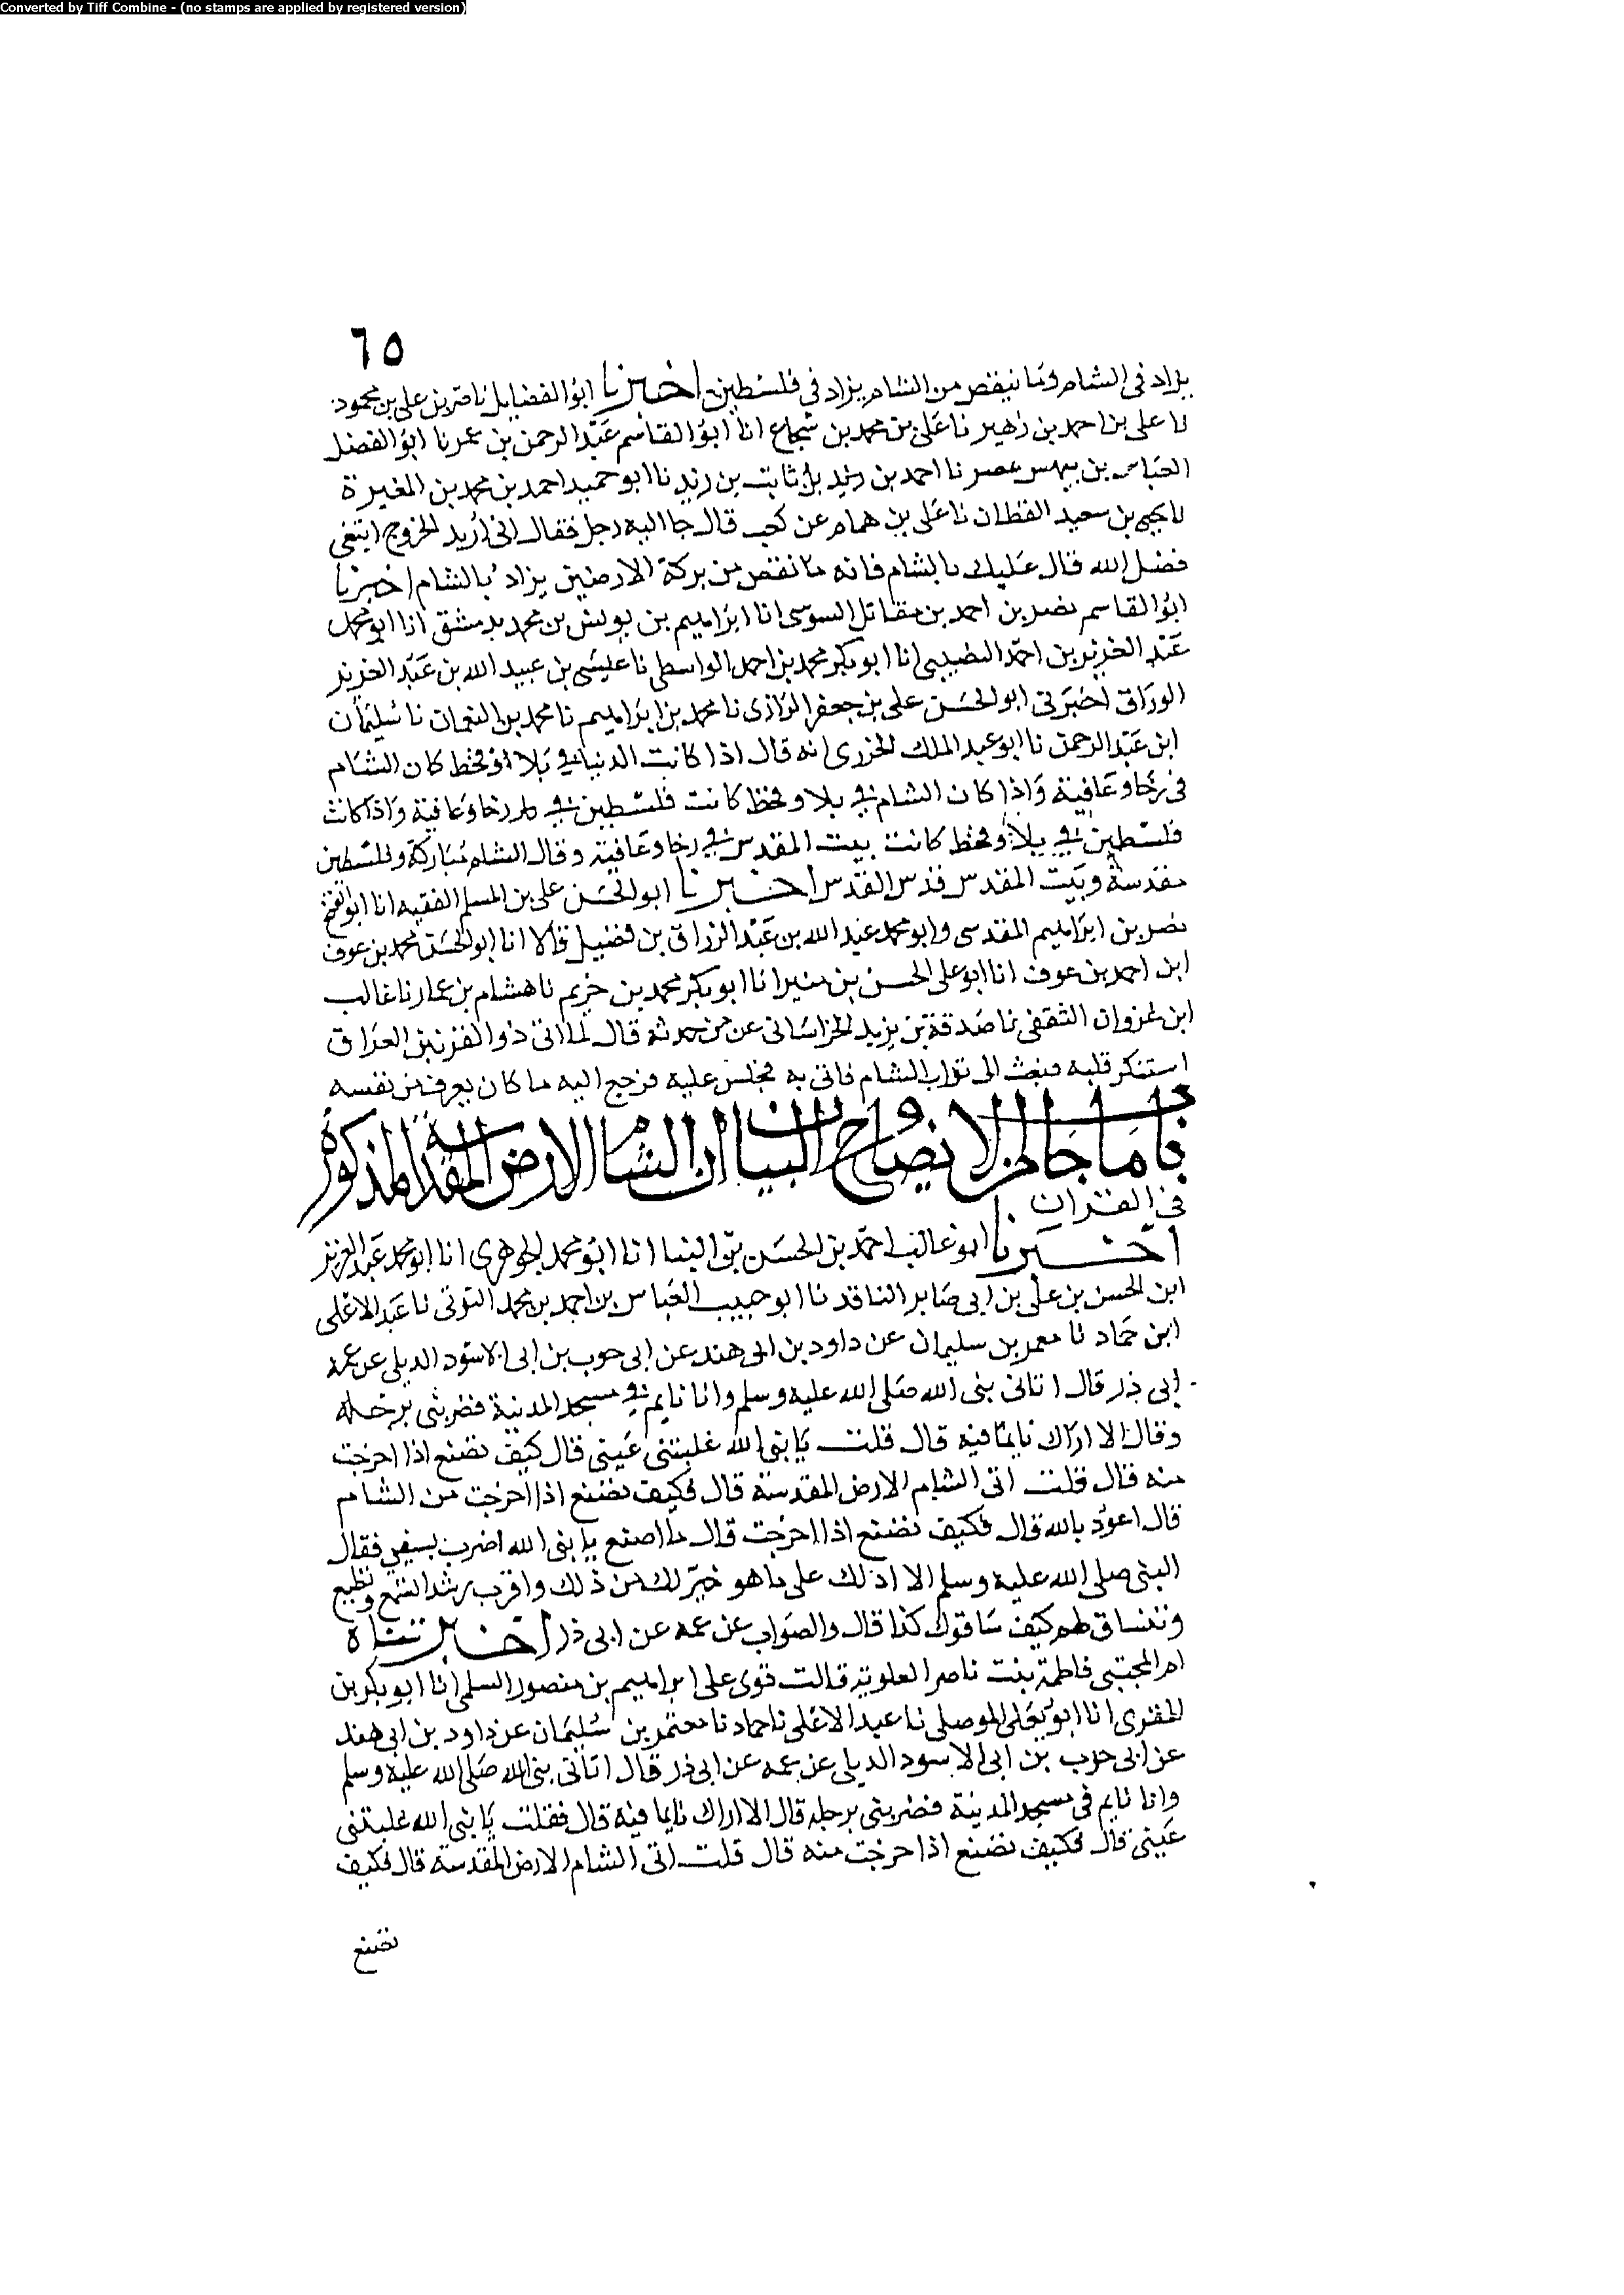 Converted by Tiff Combine - (no stamps are applied by registered version)
٦٥
يزاد فى الشام وما ينقص من الشام يزاد فى فلسطين اخبرنا ابو الفضايل ناصر بن على بن محمود
نا على بن احمد بن زهير نا على بن محمد بن شجاع انا ابو القاسم عبد الرحمن بن عمر نا ابو الفضل
العباس بن بيهس بمصر نا احمد بن زيد بل ثابت بن زيد نا ابو حميد احمد بن محمد بن المغيرة
نا يحيى بن سعيد القطان نا على بن همام عن كعب قال جا اليه رجل فقال انى اريد الخروج ابتغى
فضل الله قال عليك بالشام فانه ما نقص من بركة الارضين يزاد بالشام اخبرنا
ابو القاسم نصر بن احمد بن مقاتل السوسى انا ابراهيم بن يونس بن محمد بدمشق انا ابو محمد
عبد العزيز بن احمد النصيبى انا ابو بكر محمد بن احمد الواسطى نا عيسى بن عبيد الله بن عبد العزيز
الوراق اخبرنى ابو الحسن على بن جعفر الرازى نا محمد بن ابراهيم نا محمد بن النعمان نا سليمان
ابن عبد الرحمن نا ابو عبد الملك الجزرى انه قال اذا كانت الدنيا فى بلا او قحط كان الشام
فى رخا وعافية واذا كان الشام فى بلا وقحط كانت فلسطين فى رخا وعافية واذا كانت
فلسطين فى بلا وقحط كانت بيت المقدس فى رخا وعافية وقال الشام مباركة وفلسطين
مقدسة وبيت المقدس قدس القدس اخبرنا ابو الحسن على بن المسلم الفقيه انا ابو الفتح
نصر بن ابراهيم المقدسى وابو محمد عبد الله بن عبد الرزاق بن فضيل قالا انا ابو الحسن محمد بن عوف
ابن احمد بن عوف انا ابو على الحسن بن منير انا ابو بكر محمد بن خريم نا هشام بن عمار نا غالب
ابن غزوان الثقفى نا صدقة بن يزيد الخراسانى عن من حدثه قال لما اتى ذو القرنين العراق
استنكر قلبه فبعث الى تراب الشام فاتى به فجلس عليه فرجع اليه ما كان يعرف من نفسه
باب ما جا من الايضاح والبيان ان الشام الارض المقدسة المذكورة
فى القران
اخبرنا ابو غالب احمد بن الحسن بن البنا انا ابو محمد الجوهرى انا ابو محمد عبد العزيز
ابن الحسن بن على بن ابى صابر الناقد نا ابو حبيب العباس بن احمد بن محمد التوتى نا عبد الاعلى
ابن حماد نا معمر بن سليمان عن داود بن ابى هند عن ابى حرب بن ابى الاسود الديلى عن عمه
ابى ذر قال اتانى نبى الله صلى الله عليه وسلم وانا نايم فى مسجد المدينة فضربنى برجله
وقال الا اراك نايما فيه قال قلت يا نبى الله غلبتنى عينى قال كيف تصنع اذا اخرجت
منه قال قلت اتى الشام الارض المقدسة قال فكيف تصنع اذا اخرجت من الشام
قال اعوذ بالله قال فكيف تصنع اذا اخرجت قال ما اصنع يا نبى الله اضرب بسيفى فقال
النبى صلى الله عليه وسلم الا ادلك على ما هو خير لك من ذلك واقرب رشدا تسمع وتطيع
وتنساق لهم كيف ساقوك كذا قال والصواب عن عمه عن ابى ذر اخبرتناه
ام المجتبى فاطمة بنت ناصر العلوية قالت قرى على ابراهيم بن منصور السلمى انا ابو بكر بن
المقرى انا ابو يعلى الموصلى نا عبد الاعلى نا حماد نا معتمر بن سليمان عن داود بن ابى هند
عن ابى حرب بن ابى الاسود الديلى عن عمه عن ابى ذر قال اتانى نبى الله صلى الله عليه وسلم
وانا نايم فى مسجد المدينة فضربنى برجله قال الا اراك نايما فيه قال فقلت يا نبى الله غلبتنى
عينى قال فكيف تصنع اذا خرجت منه قال قلت اتى الشام الارض المقدسة قال فكيف
تصنع